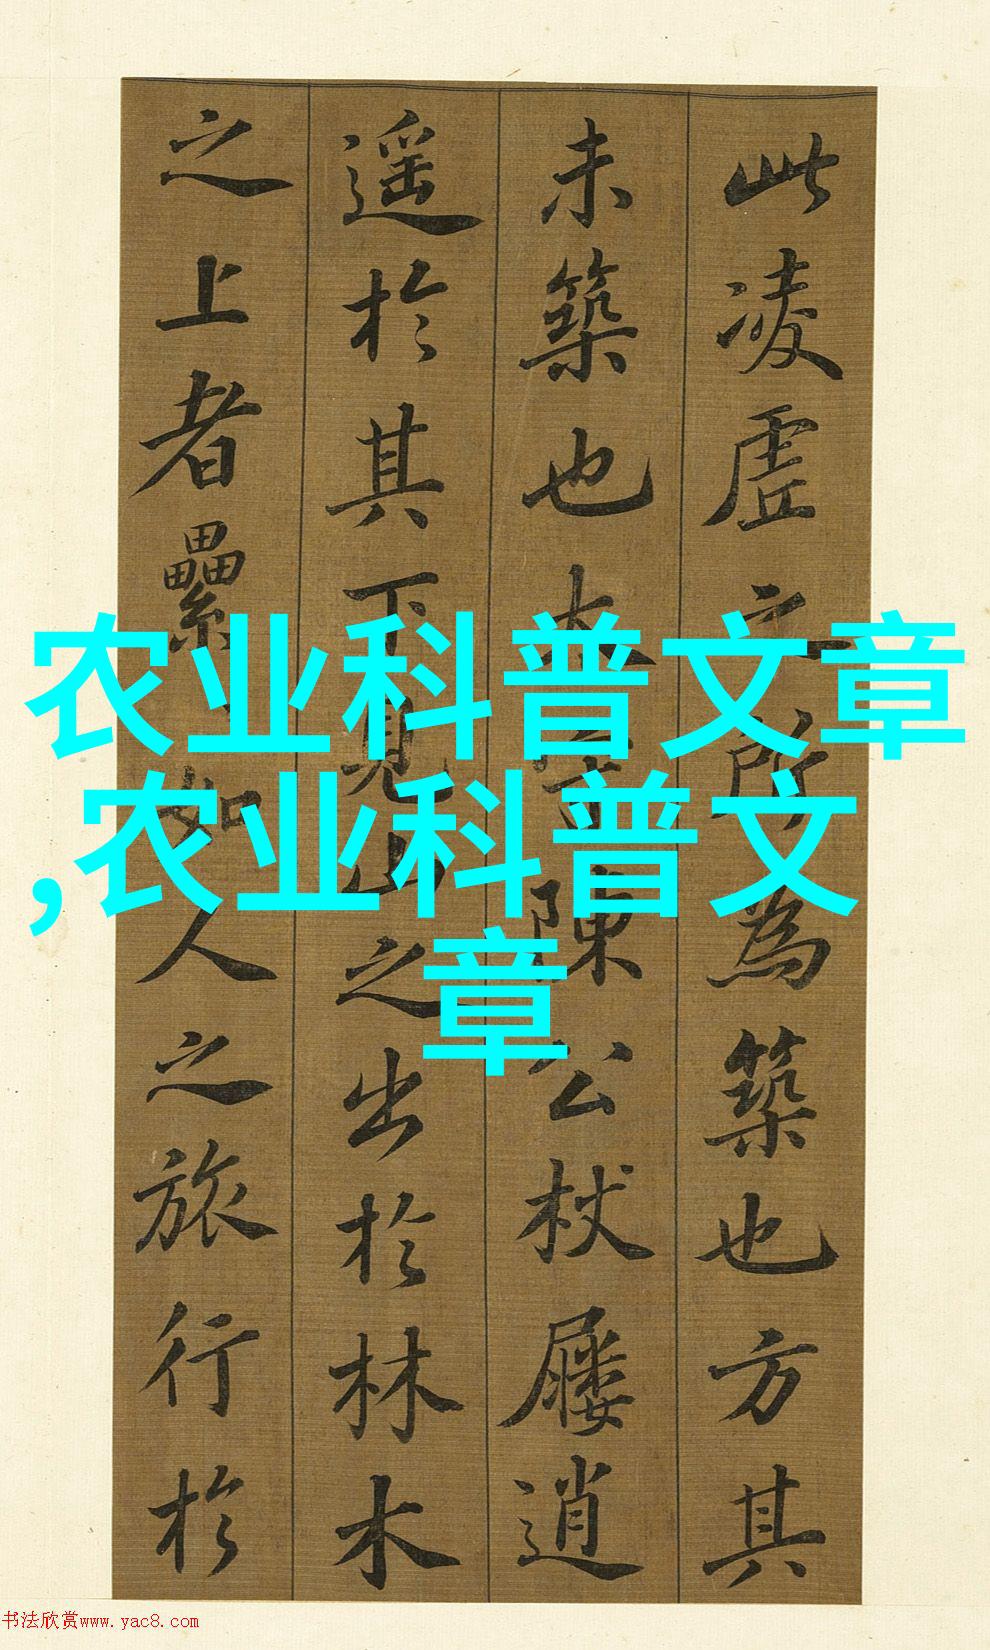 此凌虚之所為築也方其
未築也太守陳公杖屨逍
遥於其下見山之出於林木
之上者纍如人之旅行於
农业科普文章
,农业科普文
章
书法欣赏www.yac8.com